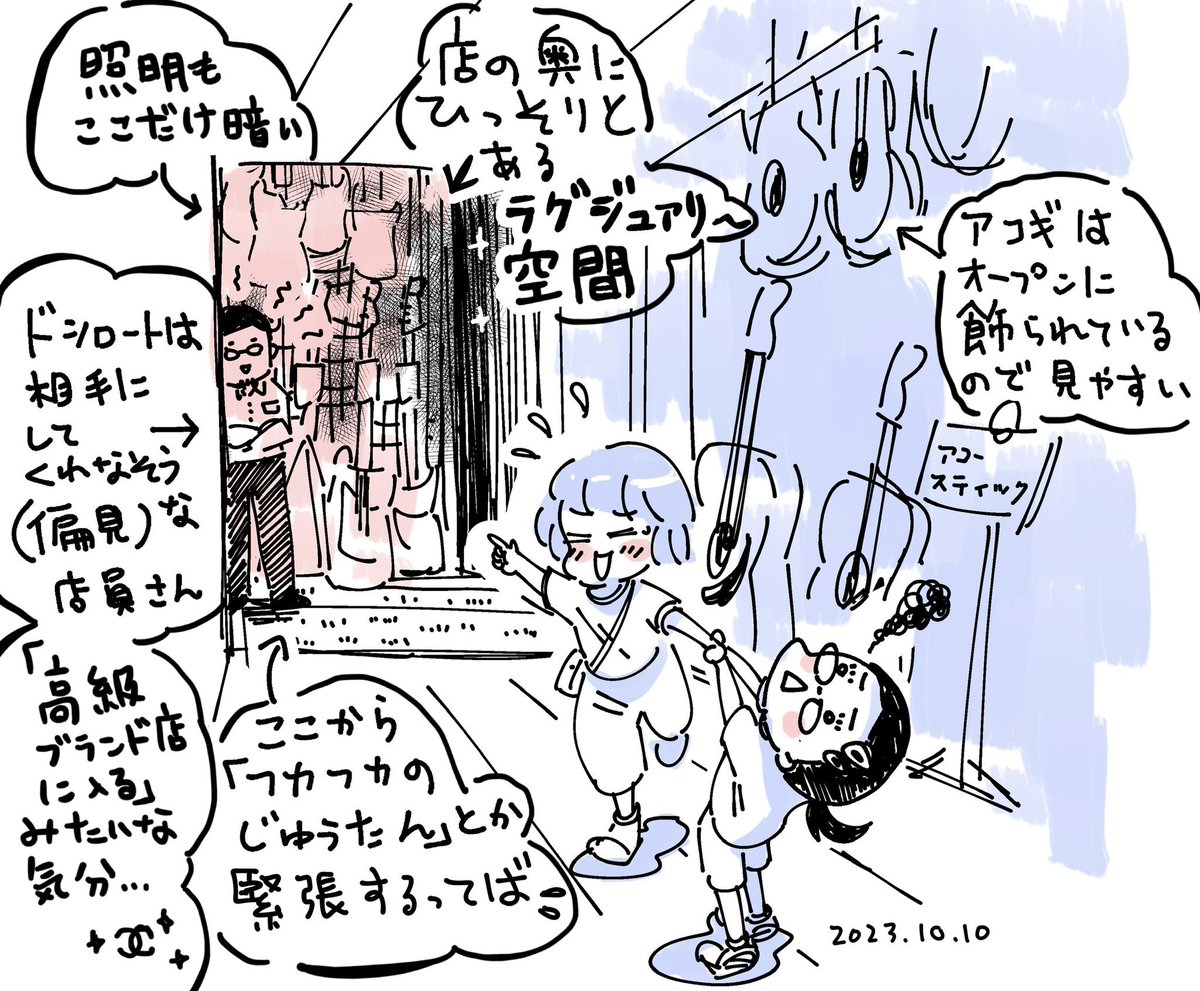 照明も
ここだけ暗い
店の奥に
ひっそりと
ある
ラグジュアリ〜
空間
アコギは
オープンに
飾られている
ので見やすい
アコー
スティック
ドシロートは
相手に
して
くれなそう
(偏見)な
店員さん
「高級
ブランド店
に入る」
みたいな
気分…
ここから
「フカフカの
じゅうたん」とか
緊張するってば
2023.10.10